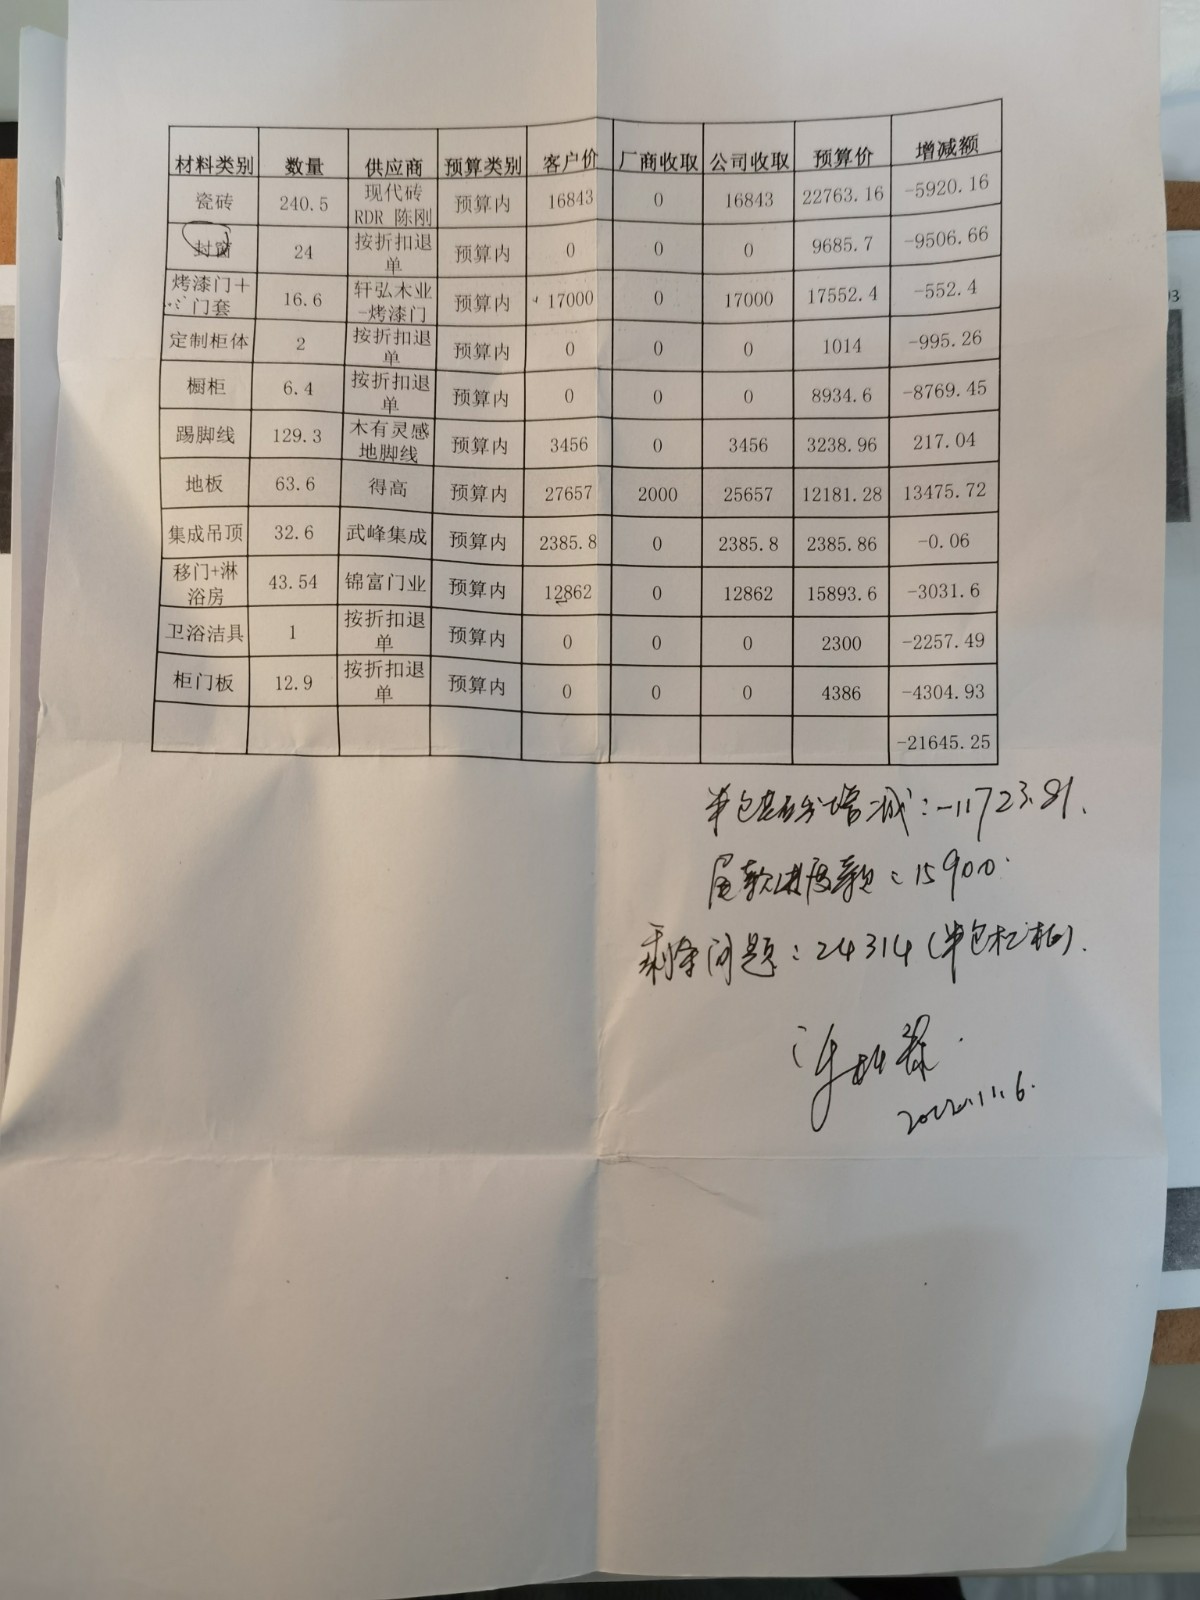 材料类别 数量 供应商 预算类别 客户价 厂商收取 公司收取 预算价 增减额
瓷砖 240.5 现代砖RDR 陈刚 预算内 16843 0 16843 22763.16 -5920.16
封窗 24 按折扣退单 预算内 0 0 0 9685.7 -9506.66
烤漆门+门套 16.6 轩弘木业-烤漆门 预算内 17000 0 17000 17552.4 -552.4
定制柜体 2 按折扣退单 预算内 0 0 0 1014 -995.26
橱柜 6.4 按折扣退单 预算内 0 0 0 8934.6 -8769.45
踢脚线 129.3 木有灵感地脚线 预算内 3456 0 3456 3238.96 217.04
地板 63.6 得高 预算内 27657 2000 25657 12181.28 13475.72
集成吊顶 32.6 武峰集成 预算内 2385.8 0 2385.8 2385.86 -0.06
移门+淋浴房 43.54 锦富门业 预算内 12862 0 12862 15893.6 -3031.6
卫浴洁具 1 按折扣退单 预算内 0 0 0 2300 -2257.49
柜门板 12.9 按折扣退单 预算内 0 0 0 4386 -4304.93
-21645.25
半包基础增减:-11723.81.
尾款进度款:15900.
剩余问题:24314(半包)
2022.11.6.
03